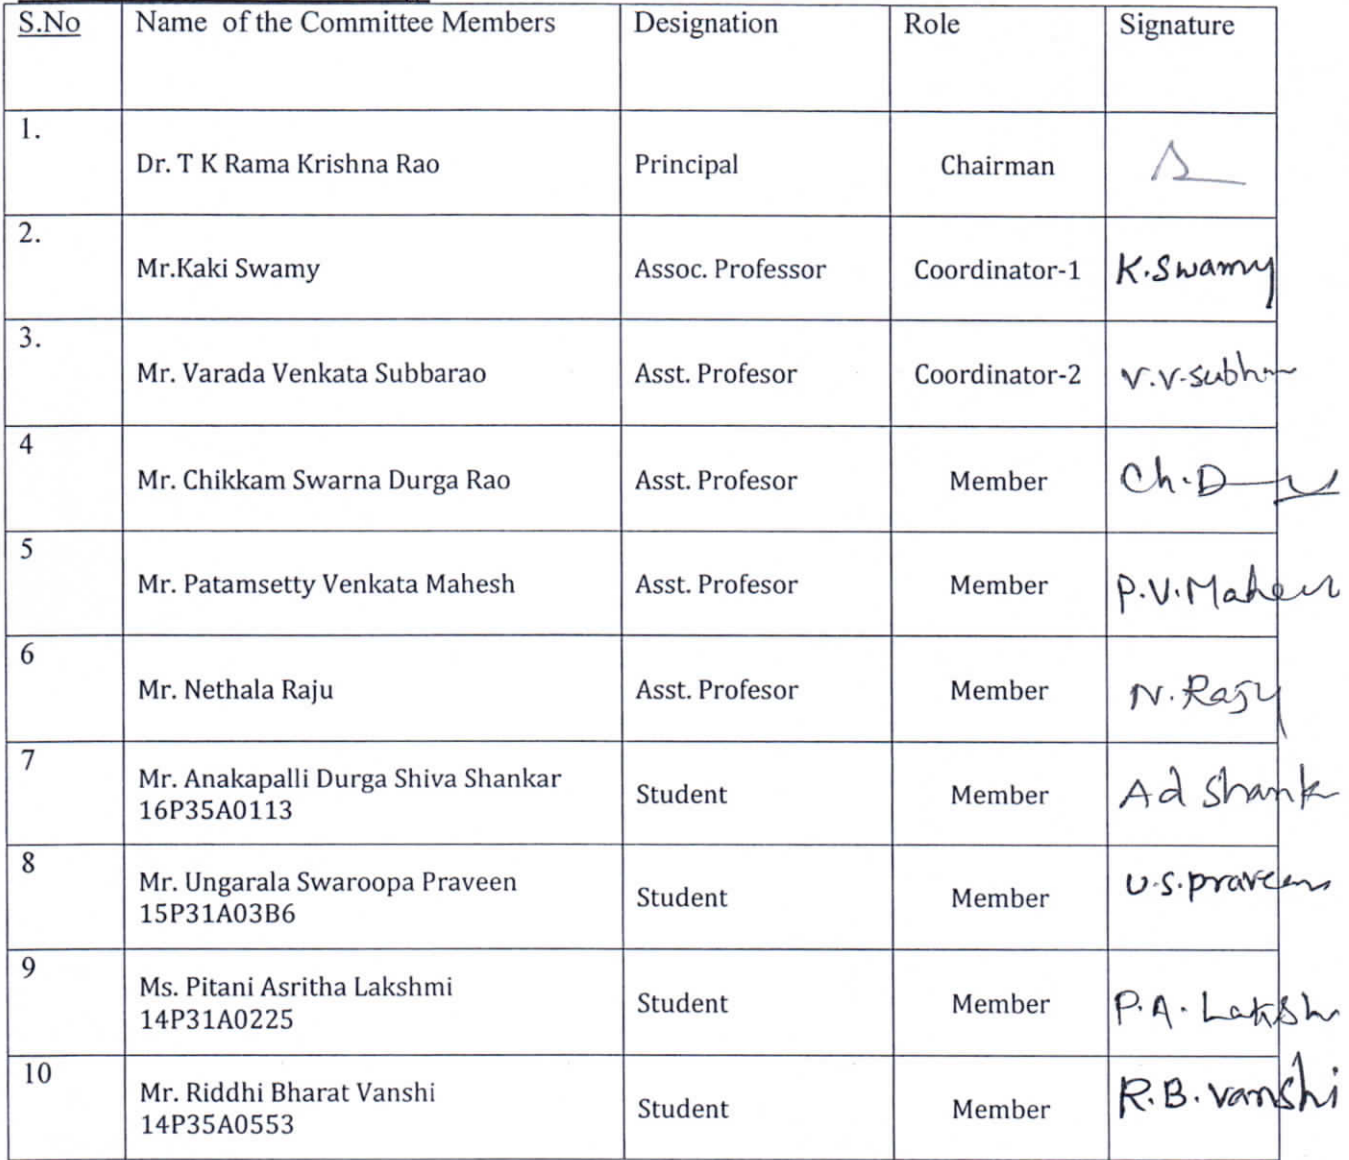 S.No Name of the Committee Members Designation Role Signature
1.
Dr. T K Rama Krishna Rao Principal Chairman
2.
Mr.Kaki Swamy Assoc. Professor Coordinator-1 K.Swamy
3.
Mr. Varada Venkata Subbarao Asst. Profesor Coordinator-2 V.V.Subh
4
Mr. Chikkam Swarna Durga Rao Asst. Profesor Member Ch.D
5
Mr. Patamsetty Venkata Mahesh Asst. Profesor Member P.V.Mahesh
6
Mr. Nethala Raju Asst. Profesor Member N.Raju
7
Mr. Anakapalli Durga Shiva Shankar Student Member Ad Shank
16P35A0113
8
Mr. Ungarala Swaroopa Praveen Student Member U.S.praveen
15P31A03B6
9
Ms. Pitani Asritha Lakshmi Student Member P.A. Laksh
14P31A0225
10
Mr. Riddhi Bharat Vanshi Student Member R.B.vanshi
14P35A0553